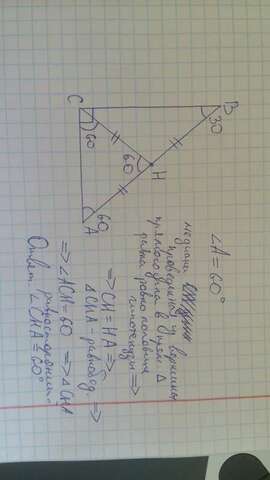 C
B
A
H
60
30
60
60
∠A = 60°
медиана
проведенная у вершины
прямого угла в прям. Δ
равна половине
гипотенузы =>
=> CH = HA =>
ΔCHA равнобед. =>
=> ∠ACH = 60 => ΔCHA
равносторонний
Ответ: ∠CHA = 60°